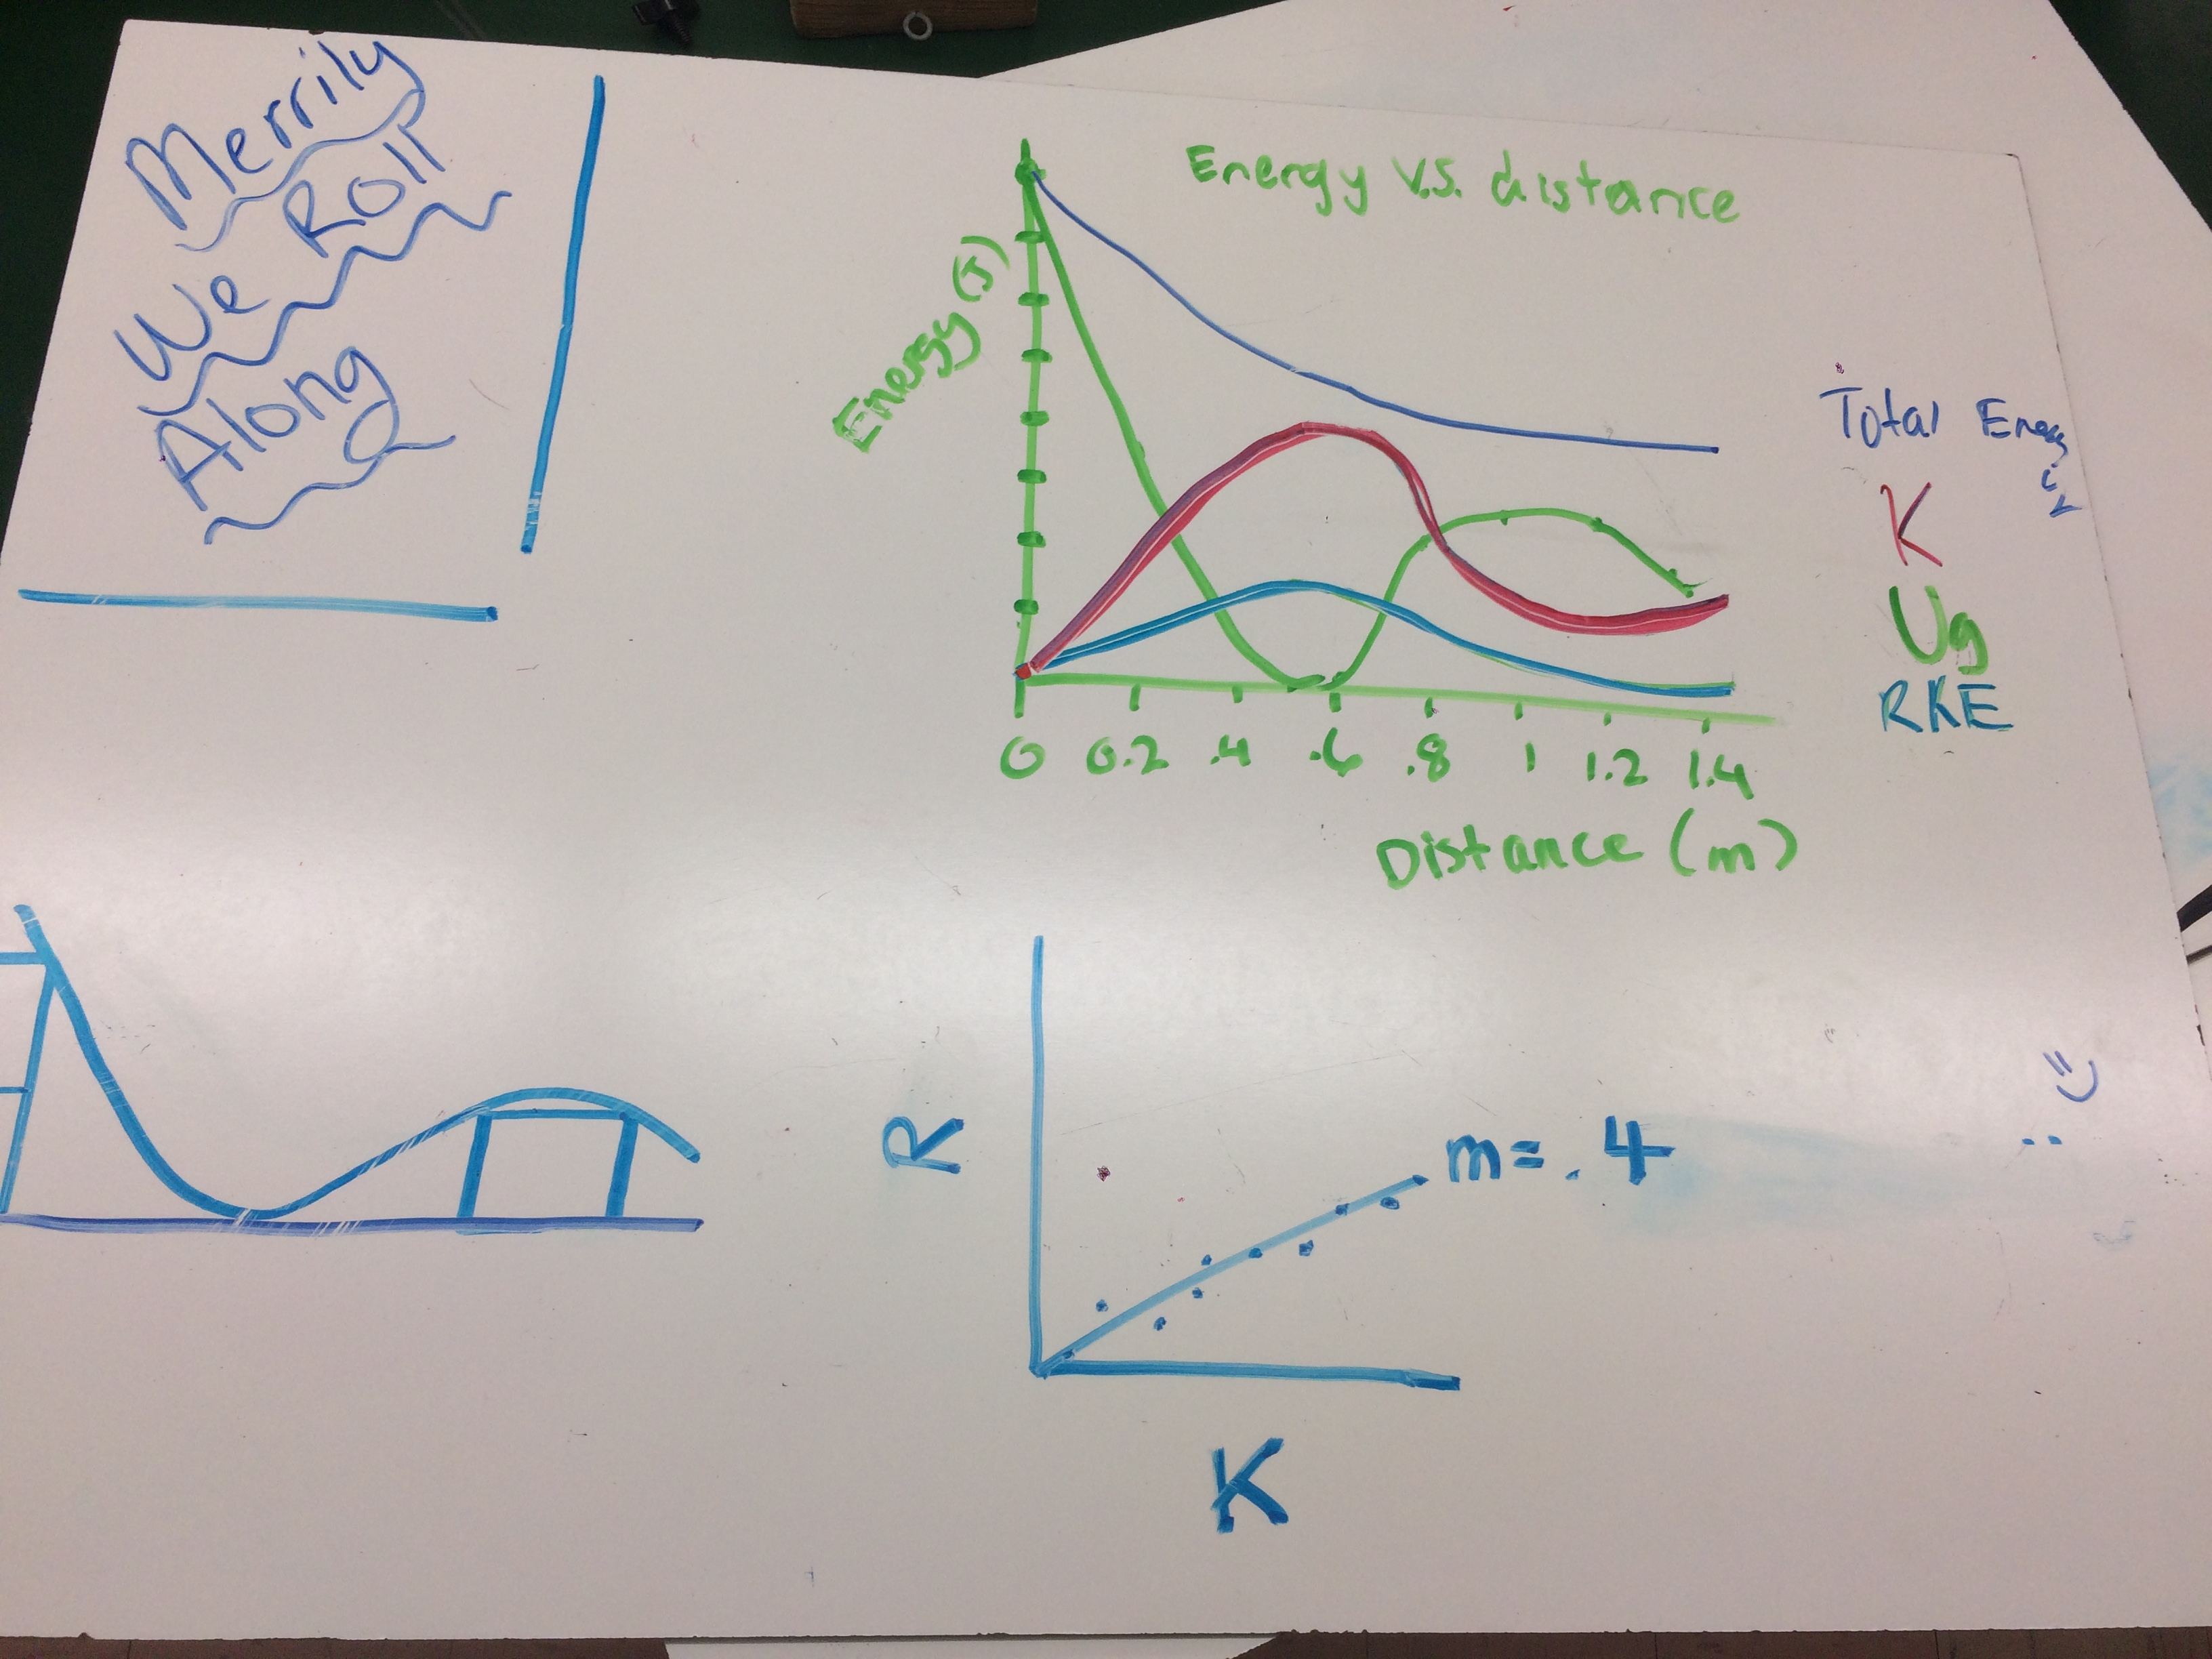 Merrily
We Roll
Along
Energy v.s. distance
Energy (J)
Total Energy
K
Ug
RKE
0 0.2 .4 .6 .8 1 1.2 1.4
Distance (m)
R
m= .4
K